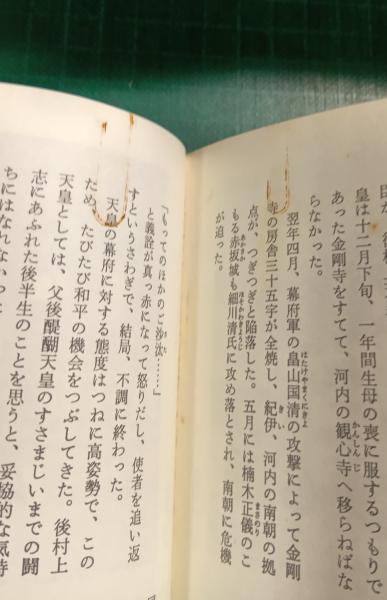 皇は十二月下旬、一年間生母の喪に服するつもりで
あった金剛寺をすてて、河内の観心寺へ移らねばな
らなかった。
翌年四月、幕府軍の畠山国清の攻撃によって金剛
寺の房舎三十五宇が全焼し、紀伊、河内の南朝の拠
点が、つぎつぎと陥落した。五月には楠木正儀のこ
もる赤坂城も細川清氏に攻め落とされ、南朝に危機
が迫った。
「もってのほかのご沙汰……」
と義詮が真っ赤になって怒りだし、使者を追い返
すというさわぎで、結局、不調に終わった。
天皇の幕府に対する態度はつねに高姿勢で、この
ため、たびたび和平の機会をつぶしてきた。後村上
天皇としては、父後醍醐天皇のすさまじいまでの闘
志にあふれた後半生のことを思うと、妥協的な気持
ちにはなれなかった